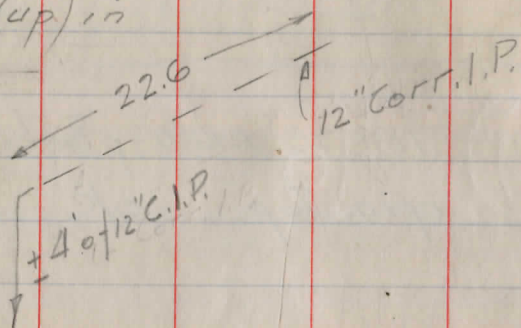 (up) in
22.6
12" Corr. I.P.
± 4' of 12" C.I.P.